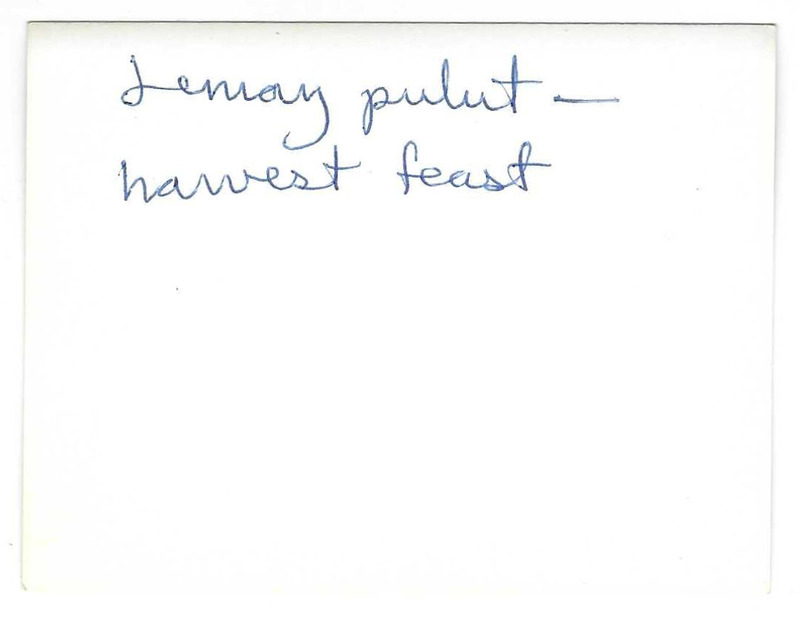 Lemang pulut —
harvest feast